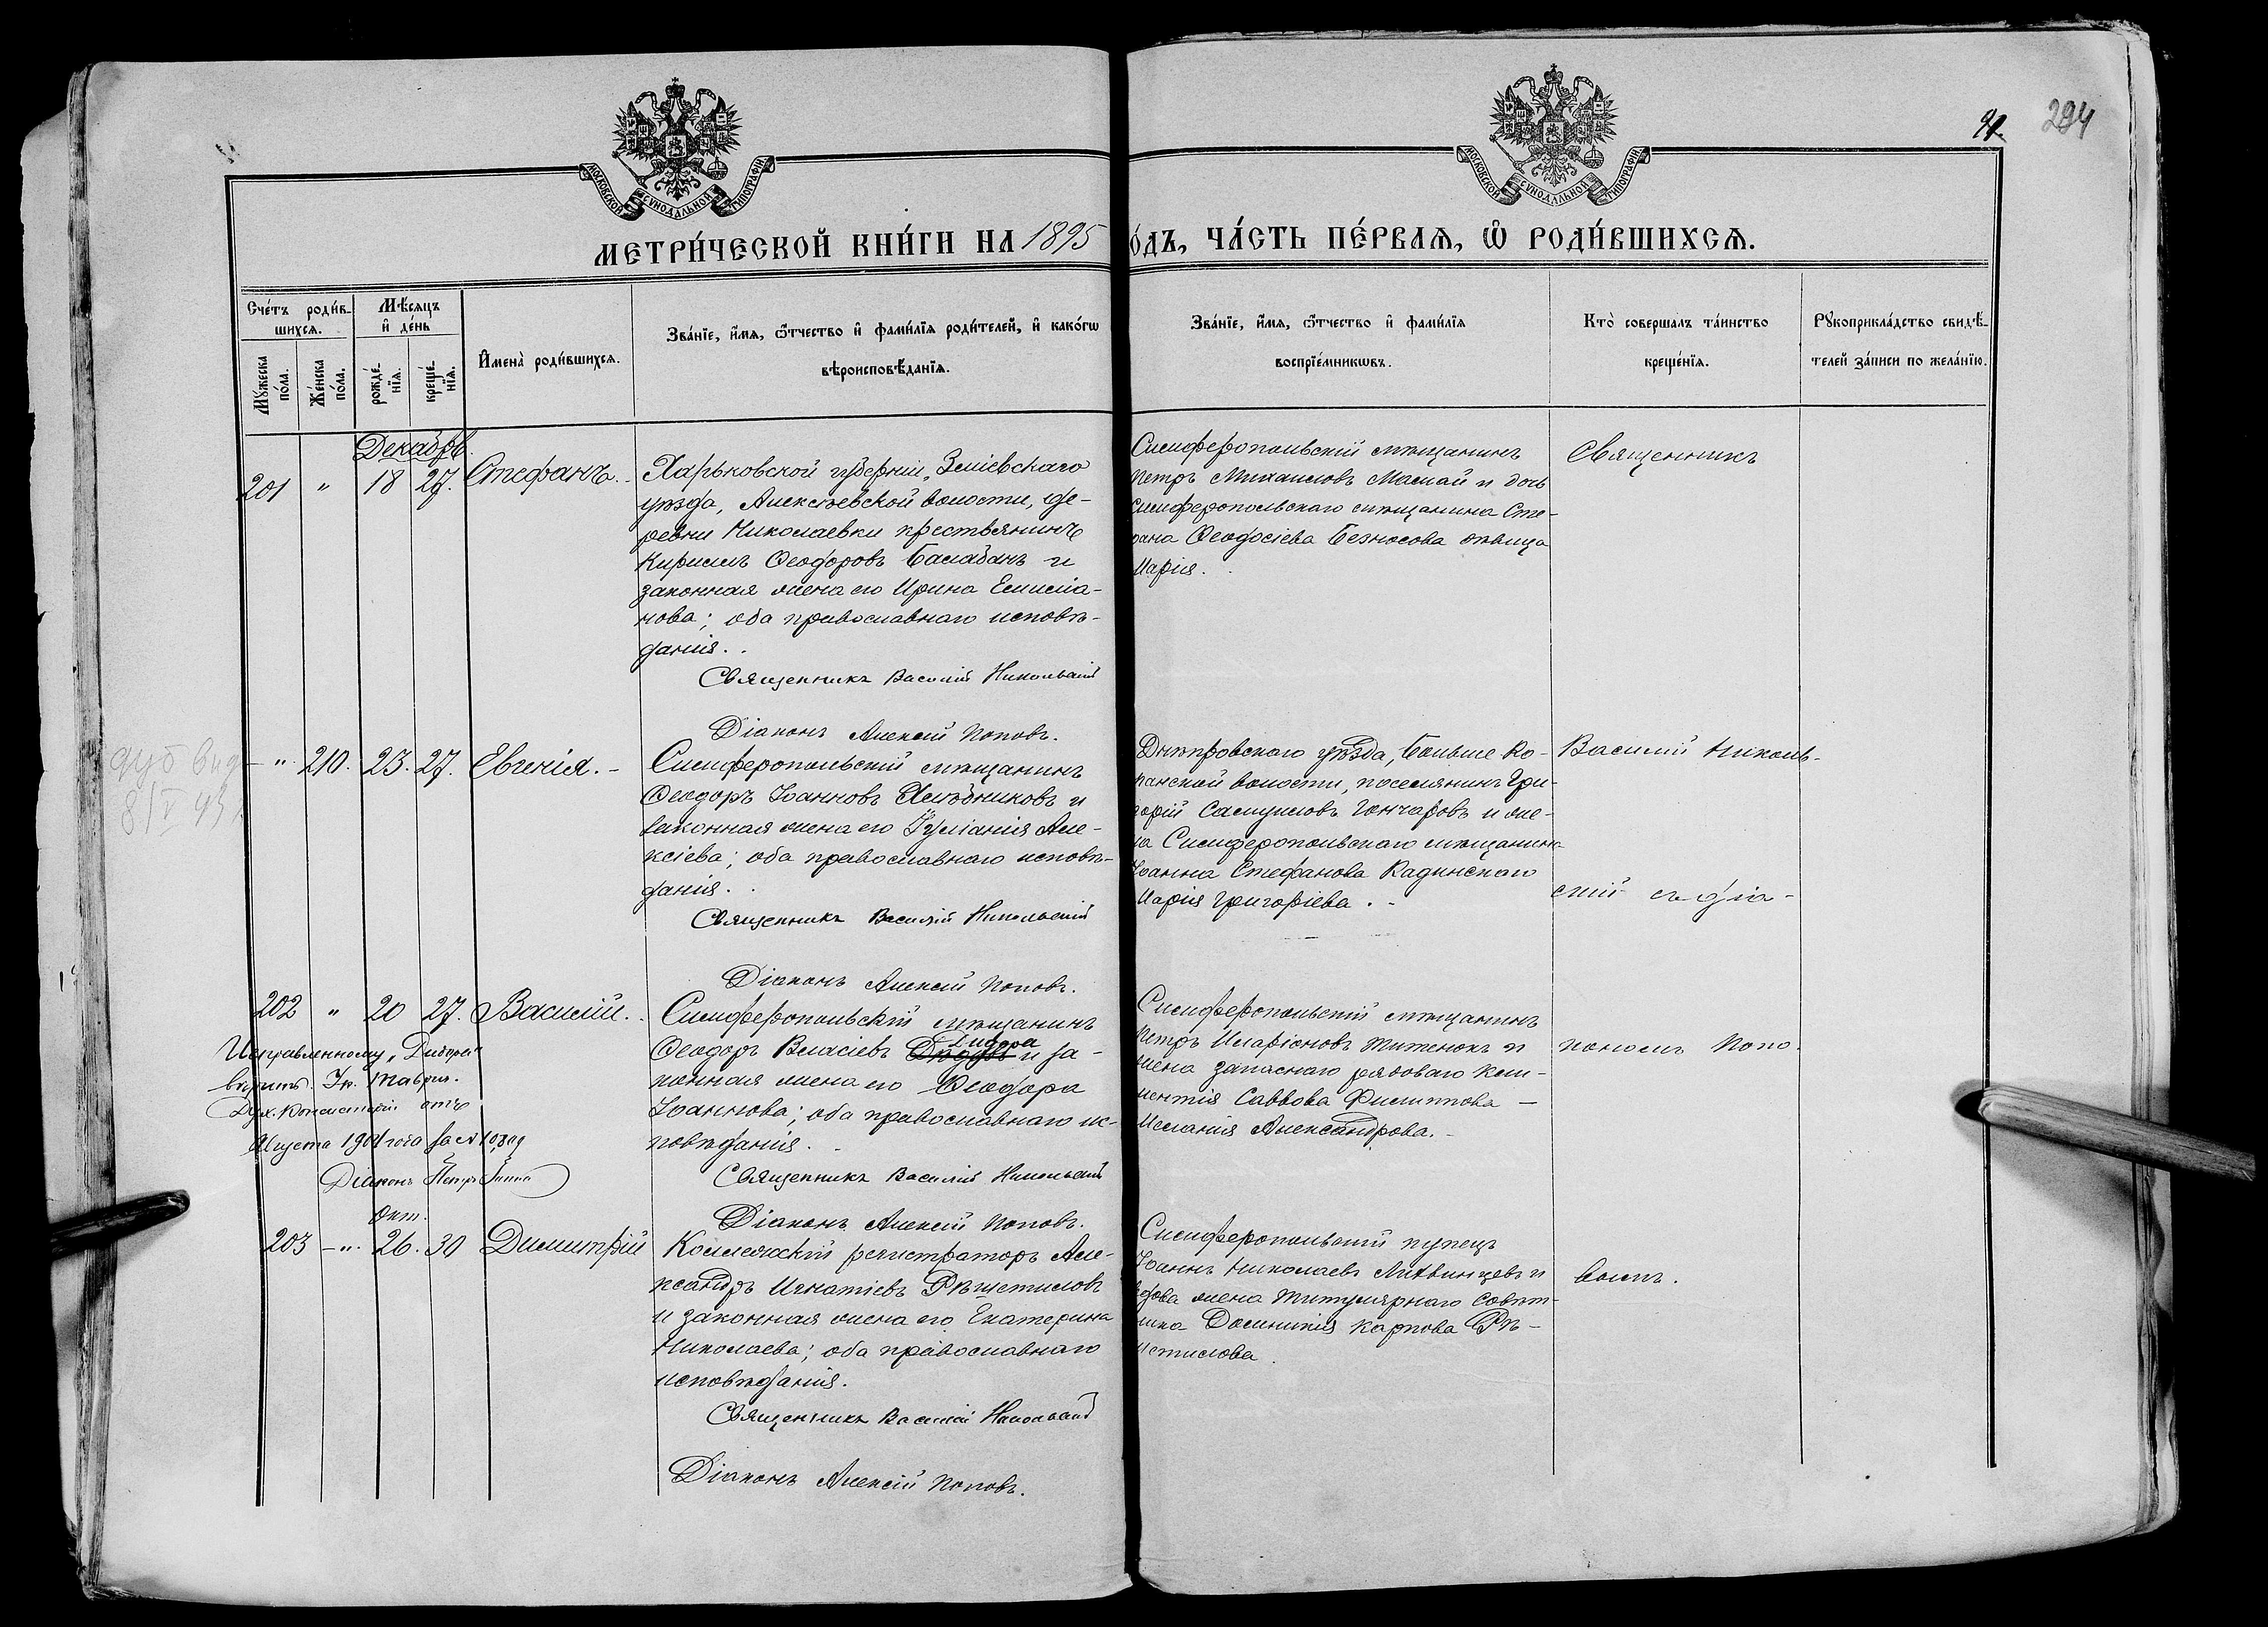 91.
294
МОСКОВСКОЙ СУНОДАЛЬНОЙ ТИПОГРАФІИ
МОСКОВСКОЙ СУНОДАЛЬНОЙ ТИПОГРАФІИ
МЕТРИ́ЧЕСКОЙ КНИ́ГИ НА 1895
О́ДЪ, ЧА́СТЬ ПЕ́РВАѦ, Ѡ҆ РОДИ́ВШИХСѦ.
Сче́тъ роди́в-
шихсѧ.
Мꙋ́жеска
по́ла.
Же́нска
по́ла.
Мѣ́сѧцъ
и҆ де́нь
рожде́-
нїѧ.
креще́-
нїѧ.
И҆мена̀ роди́вшихсѧ.
Зва́нїе, и҆́мѧ, ѻ҆́тчество и҆ фами́лїѧ роди́телей, и҆ како́гѡ
вѣроисповѣ́данїѧ.
Зва́нїе, и҆́мѧ, ѻ҆́тчество и҆ фами́лїѧ
воспрїе́мникѡвъ.
Кто̀ совершалъ та́инство
креще́нїѧ.
Рꙋкоприкла́дство свидѣ́-
телей за́писи по жела́нїю.
Декабрь.
201 " 18 27. Стефанъ.
Харьковской губерніи, Зміевскаго
уѣзда, Алексѣевской волости, де-
ревни Николаевки крестьянинъ
Кириллъ Ѳеодоровъ Балабанъ и
законная жена его Ирина Емилiа-
нова; оба православнаго исповѣ-
данія.
Священникъ Василій Никольскій
Діаконъ Алексій Поповъ.
Симферопольскій мѣщанинъ
Петръ Михаиловъ Мамай и дочь
Симферопольскаго мѣщанина Сте-
фана Ѳеодосіева Безносова дѣвица
Марія.
Священникъ
дуб вид
8/V 43
" 210. 23. 27. Евгенія.
Симферопольскій мѣщанинъ
Ѳеодоръ Іоанновъ Хлѣбниковъ и
законная жена его Іуліанія Але-
ксіева; оба православнаго исповѣ-
данія.
Священникъ Василій Никольскій
Діаконъ Алексій Поповъ.
Днѣпровскаго уѣзда, Больше Ко-
панской волости, поселянинъ Гри-
горій Самуиловъ Гончаровъ и же-
на Симферопольскаго мѣщанина
Іоанна Стефанова Кадинскаго
Марія Григоріева.
Василій Николь-
скій съ діа-
202 " 20 27. Василій.
Симферопольскій мѣщанинъ
Ѳеодоръ Власіевъ Дидора и за-
конная жена его Ѳеодора
Іоаннова; оба православнаго ис-
повѣданія.
Священникъ Василій Никольскій
Діаконъ Алексій Поповъ.
Исправленному „Дидора"
вѣрить. Ук. Таврич.
Дух. Консисторіи отъ
Августа 1901 года за №
Діаконъ Петръ
Симферопольскій мѣщанинъ
Петръ Иларіоновъ Титенокъ и
жена запаснаго рядоваго Кли-
ментія Саввова Филиппова —
Меланія Александрова.
кономъ Попо-
Окт.
203 " 26. 30 Димитрій
Коллежскій регистраторъ Але-
ксандръ Игнатіевъ Рѣшетиловъ
и законная жена его Екатерина
Николаева; оба православнаго
исповѣданія.
Священникъ Василій Никольскій
Діаконъ Алексій Поповъ.
Симферопольскій купецъ
Іоаннъ Николаевъ Литвинцевъ и
вдова жена Титулярнаго Совѣт-
ника Домникія Карпова Рѣ-
шетилова.
вымъ.